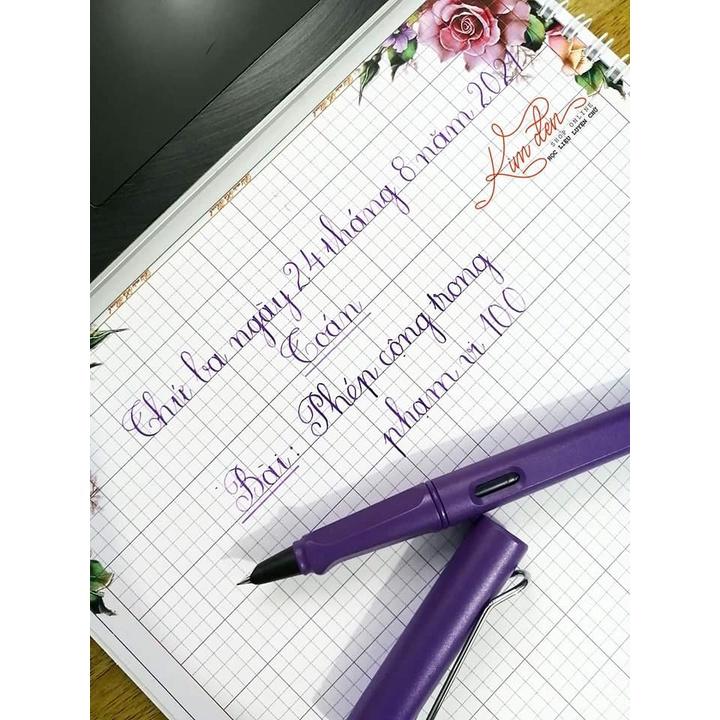 Thứ ba ngày 24 tháng 8 năm 2021
Toán
Bài: Phép công trong
phạm vi 100
Kim đen
SHOP ONLINE
HỌC LIỆU LUYỆN CHỮ